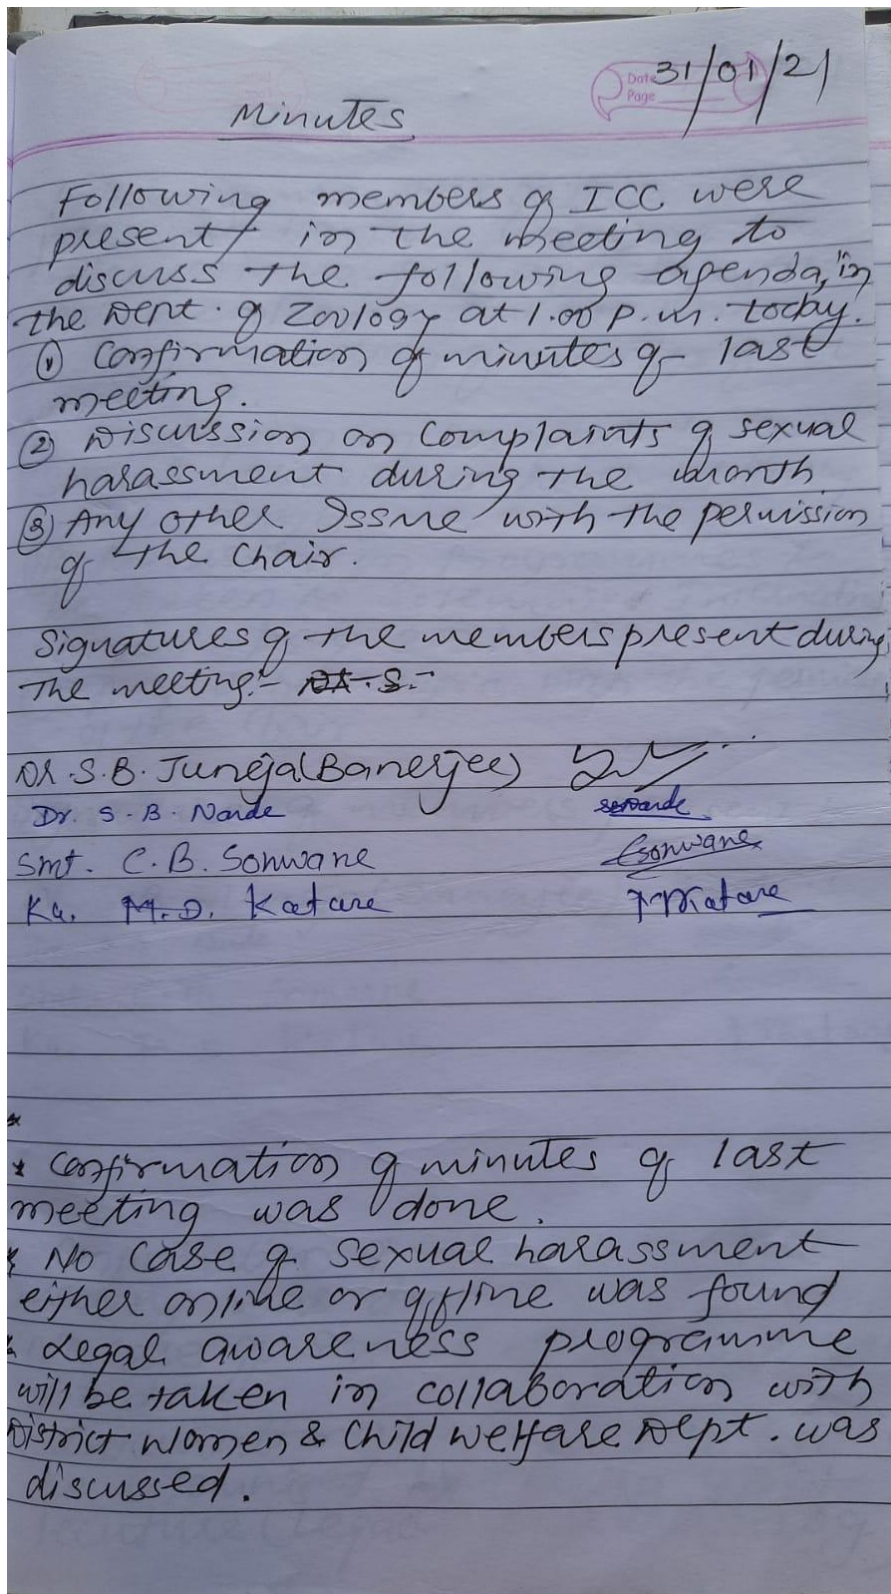 Date 31/01/21
Page
Minutes
Following members of ICC were
present in the meeting to
discuss the following agenda, in
the Dept. of Zoology at 1.00 p.m. today.
① Confirmation of minutes of last
meeting.
② Discussion on Complaints of sexual
harassment during the month
③ Any other Issue with the permission
of the Chair.
Signatures of the members present during
The meeting:- Dr. S.-
Dr. S.B. Juneja (Banerjee)
Dr. S. B. Narde SBNarde
Smt. C. B. Sonwane CSonwane
Ku. M. D. Katare MDKatare
*
* Confirmation of minutes of last
meeting was done.
* No Case of sexual harassment
either online or offline was found
* Legal awareness programme
will be taken in collaboration with
District Women & Child Welfare Dept. was
discussed.